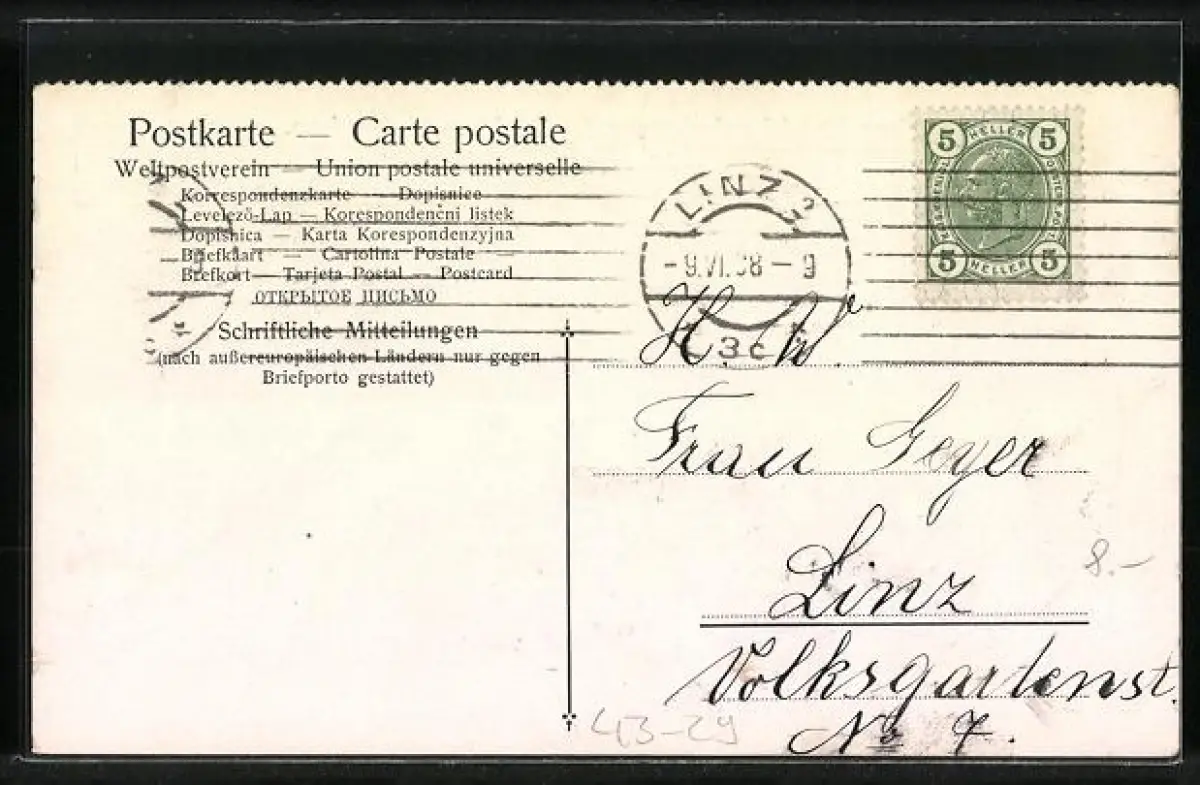 Postkarte — Carte postale
Weltpostverein — Union postale universelle
Korrespondenzkarte — Dopisnice
Levelező-Lap — Korespondenčni listek
Dopisnica — Karta Korespondenzyjna
Briefkaart — Cartolina Postale —
Brefkort — Tarjeta Postal — Postcard
ОТКРЫТОЕ ПИСЬМО
Schriftliche Mitteilungen
(nach außereuropäischen Ländern nur gegen
Briefporto gestattet)
LINZ 2
-9.VI.08-9
3c
5 HELLER 5
5 HELLER 5
H. W.
Frau Geyer
Linz
Volksgartenst.
No 7.
8.-
43-29